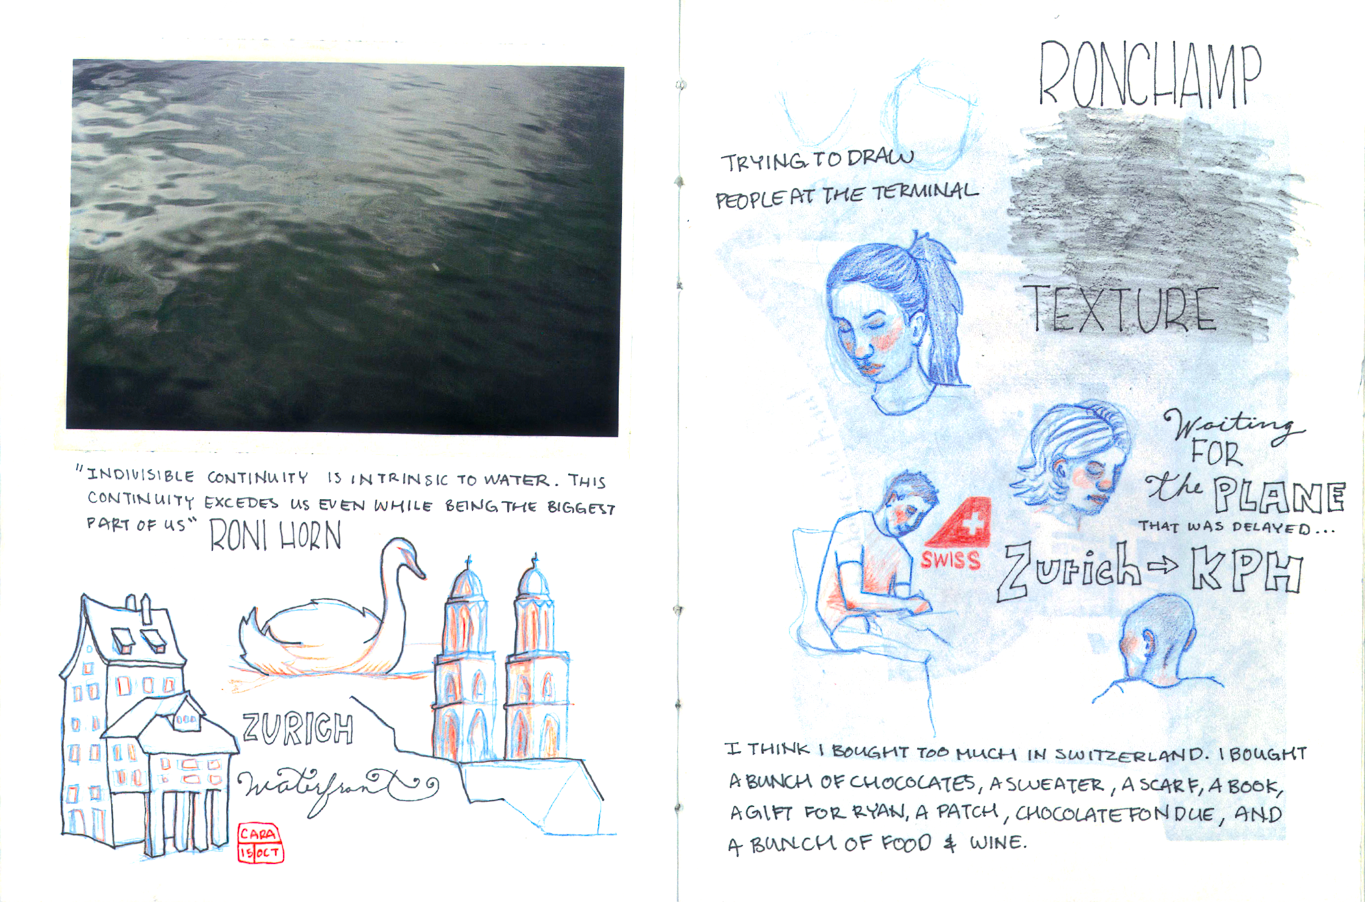 "INDIVISIBLE CONTINUITY IS INTRINSIC TO WATER. THIS
CONTINUITY EXCEDES US EVEN WHILE BEING THE BIGGEST
PART OF US" RONI HORN
ZURICH
Waterfront
CARA
15 OCT
RONCHAMP
TEXTURE
TRYING TO DRAW
PEOPLE AT THE TERMINAL
Waiting
FOR
the PLANE
THAT WAS DELAYED...
Zurich → KPH
SWISS
I THINK I BOUGHT TOO MUCH IN SWITZERLAND. I BOUGHT
A BUNCH OF CHOCOLATES, A SWEATER, A SCARF, A BOOK,
A GIFT FOR RYAN, A PATCH, CHOCOLATE FONDUE, AND
A BUNCH OF FOOD & WINE.